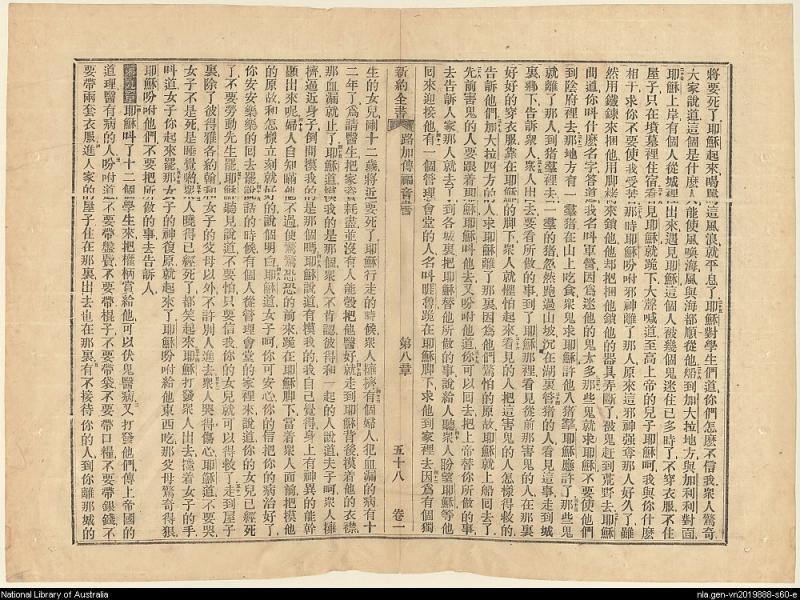 將要死了耶穌起來喝罵這風浪就平息了耶穌對學生們道你們怎麽不信我衆人驚奇
大家說道這個是什麽人能使風喚海風與海都順從他船到加大拉地方與加利利對面
耶穌上岸有個人從城裡出來遇見耶穌這個人被幾個鬼迷住已多時了不穿衣服不住
屋子只在墳墓裡住宿看見耶穌就跪下大聲喊道至高上帝的兒子耶穌呵我與你什麽
相干求你不要使我受苦那時耶穌吩咐邪神離了那人原來這邪神强奪那人好久了雖
然用鐵鍊來捆他用脚鐐來鎖他他却把捆他鎖他的器具弄斷了被鬼赶到荒野去耶穌
問道你叫什麽名字答道我名叫軍營因爲迷他的鬼太多那些鬼就求耶穌不要使他們
到陰府裡去那地方有一羣猪在山上吃食衆鬼求耶穌許他入猪羣耶穌應許了那些鬼
就離了那人到猪羣裡去一羣的猪忽然跑過山坡沉在湖裏管猪的人看見這事走到城
裏鄉下告訴衆人衆人出去要看所做的事到了耶穌那裡看見從前那害鬼的人在那裏
好好的穿衣服靠在耶穌的脚下衆人就懼怕起來看見的人把這害鬼的人怎樣得救的
告訴他們加大拉四方的人求耶穌離了那裏因爲他們驚怕的原故耶穌就上船回去了
先前害鬼的人要跟着耶穌耶穌叫他去又吩咐他道你可以回去把上帝替你所做的事
去告訴人家那人就去了到各城裏把耶穌替他所做的事說給人聽衆人盼望耶穌等他
回來迎接他有一個管理會堂的人名叫睚魯跪在耶穌脚下求他到家裡去因爲有個獨
新約全書 路加傳福音書 第八章 五十八 卷一
生的女兒爾十二歲將近要死了耶穌行走的時候衆人擁擠有個婦人犯血漏的病有十
二年了爲請醫生把家當耗盡並沒有人能彀把他醫好就走到耶穌背後摸着他的衣襟
那血漏就止了耶穌道摸我的是那個衆人不肯認彼得和一起的人說道夫子呵衆人擁
擠逼近身子倒問摸我的是那個嗎耶穌說道有摸我的我自己覺得身上有神異的能幹
顯出來呢婦人自知瞞他不過便驚驚恐恐的前來跪在耶穌脚下當着衆人面前把摸他
的原故和怎樣立刻就好的說個明白耶穌道女子呵你可安心你的信把你的病治好了
你安安樂樂的回去罷說話的時候有個人從管理會堂的家裡來說道你的女兒已經死
了不要勞動先生罷耶穌聽見說道不要怕只要信我你的女兒就可以得救了走到屋子
裏除了彼得雅各約翰和女子的父母以外不許別人進去衆人哭得傷心耶穌道不要哭
女子不是死是睡覺喲衆人曉得已經死了都笑起來耶穌打發衆人出去攙着女子的手
叫道女子你起來罷那女子的神復原就起來了耶穌吩咐給他東西吃那父母驚奇得狠
耶穌吩咐他們不要把所做的事去告訴人
第九章耶穌叫了十二個學生來把權柄賞給他可以伏鬼醫病又打發他們傳上帝國的
道理醫有病的人吩咐道不要帶盤費不要帶棍子不要帶袋不要帶口糧不要帶銀錢不
要帶兩套衣服進人家的屋子住在那裏出去也在那裏有不接待你的人到你離那城的
National Library of Australia
nla.gen-vn2019888-s60-e